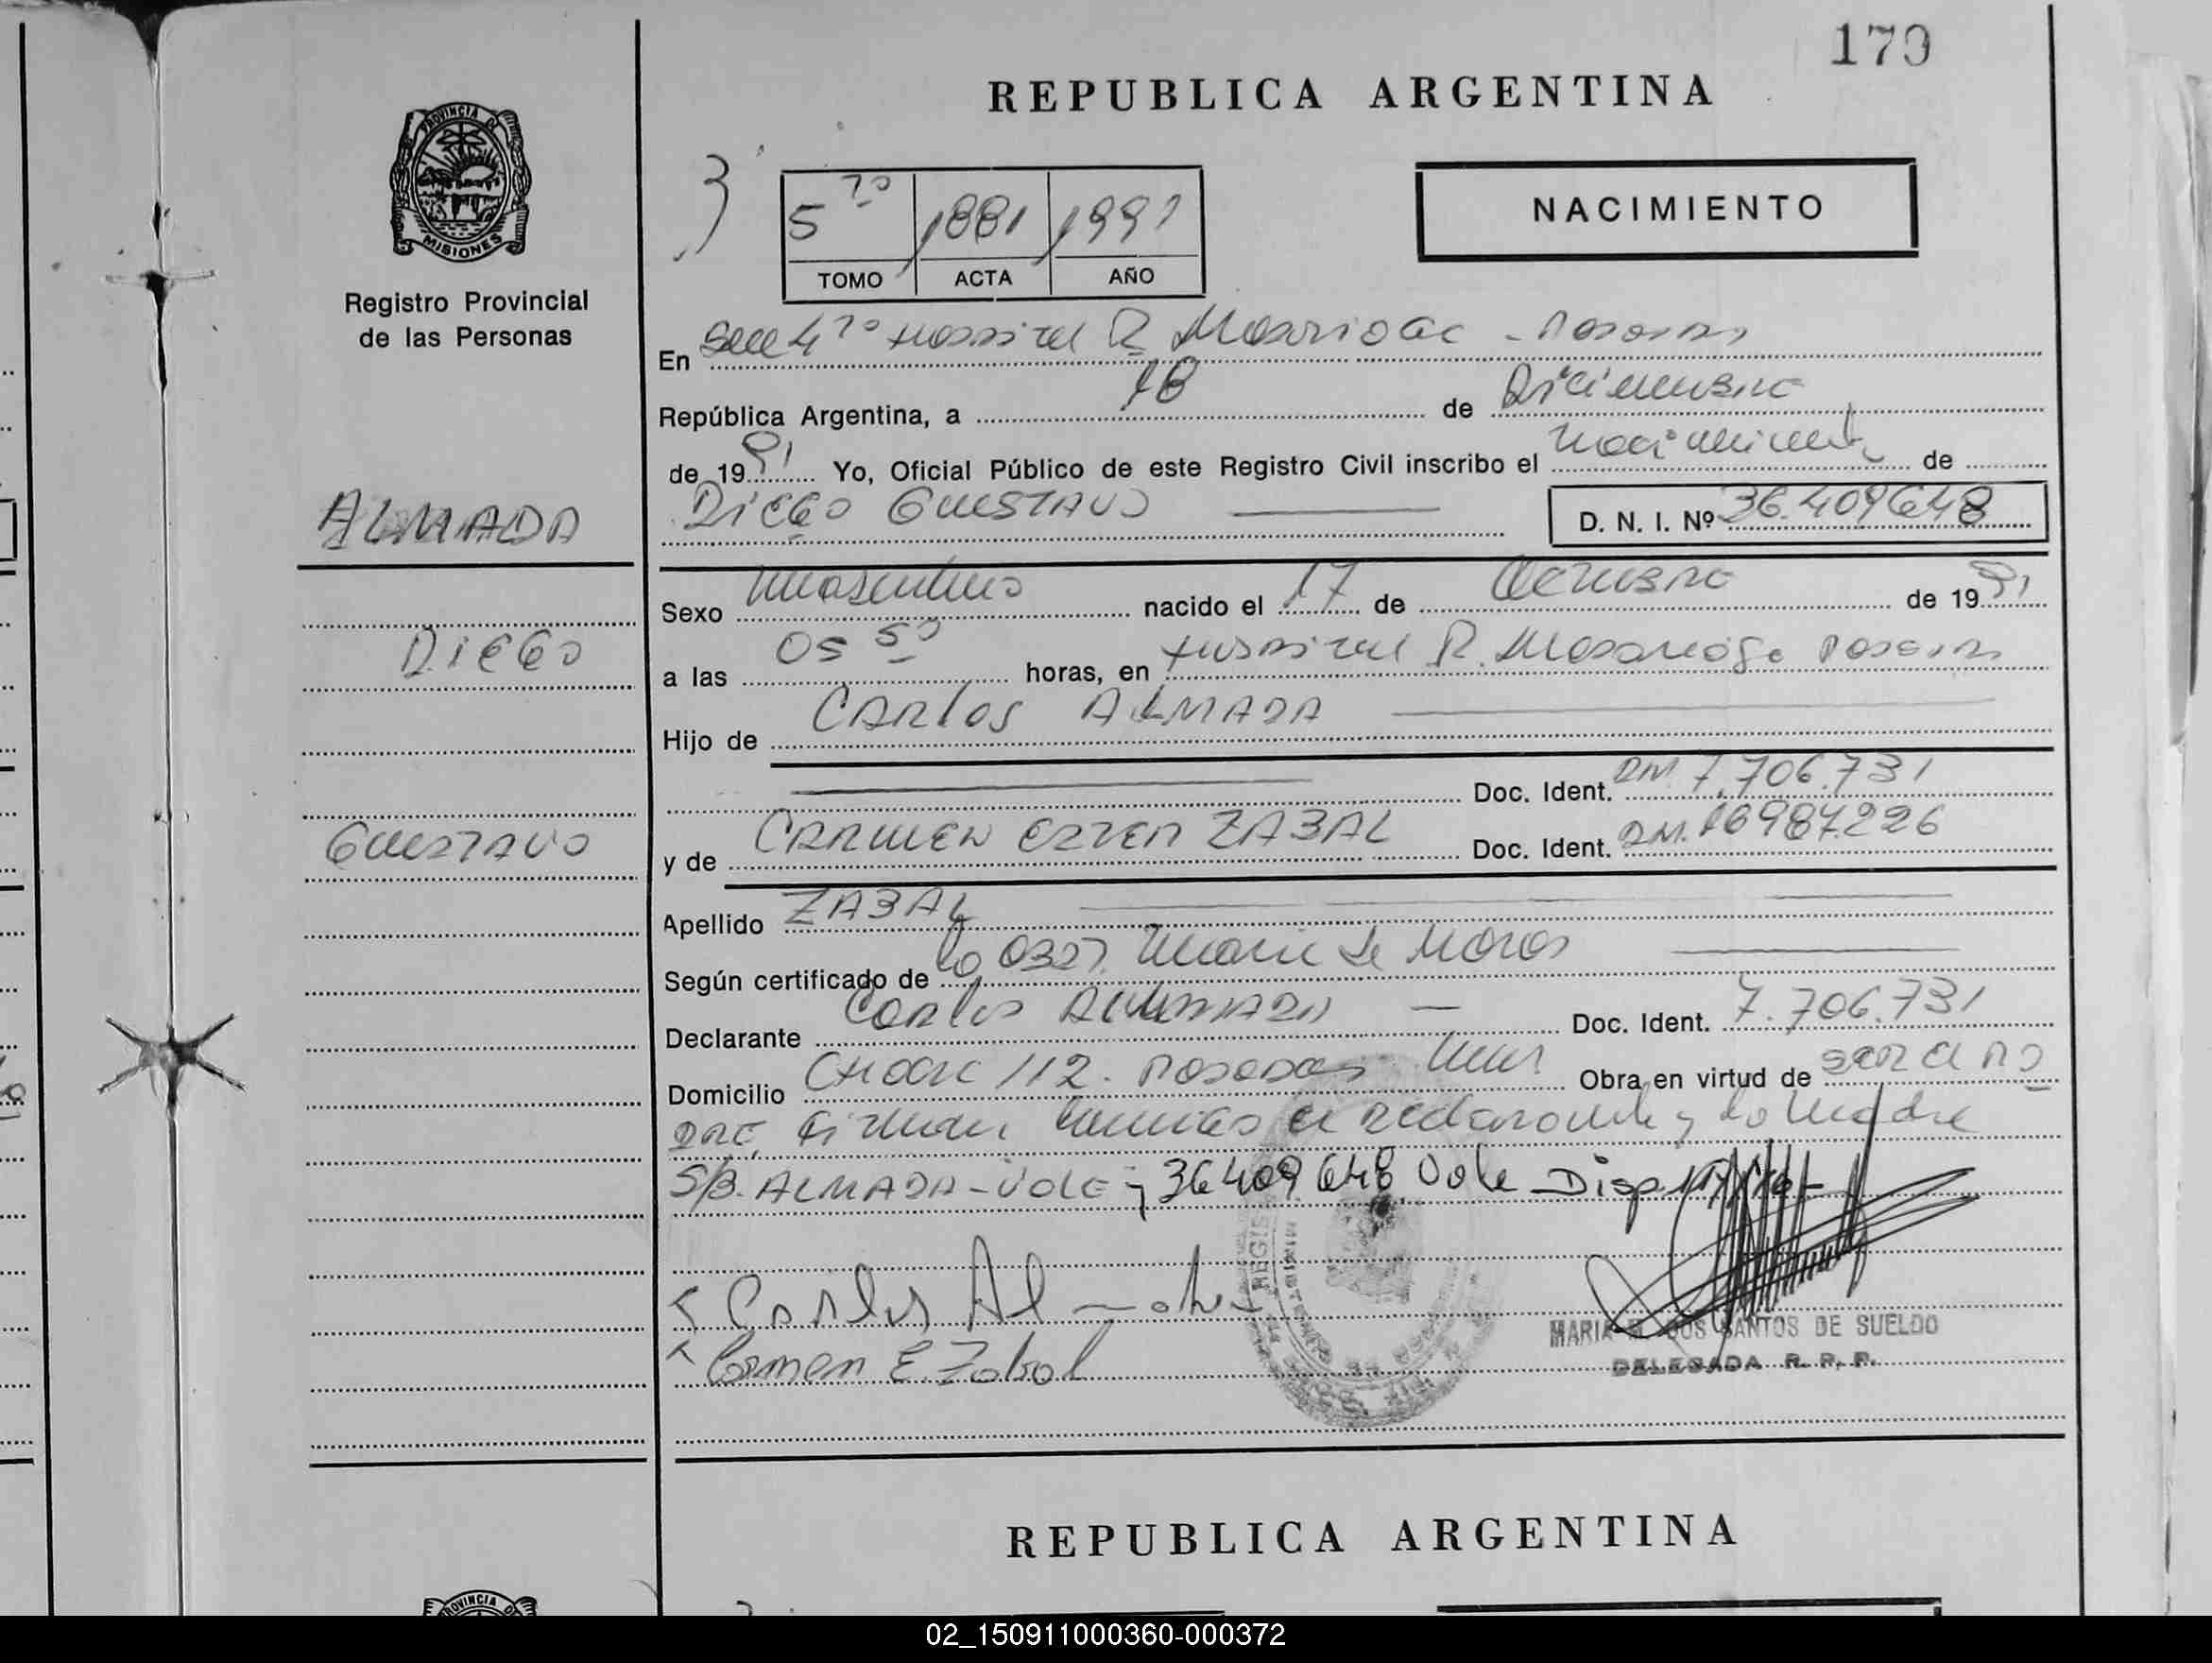 179
REPUBLICA ARGENTINA
PROVINCIA DE
MISIONES
Registro Provincial
de las Personas
3
5to 1881 1991
TOMO ACTA AÑO
NACIMIENTO
En Secc 4ta Hospital R. Madariaga - Posadas
República Argentina, a 18 de Diciembre
de 1991 Yo, Oficial Público de este Registro Civil inscribo el nacimiento de
Diego Gustavo D. N. I. Nº 36.409648
ALMADA
Diego
Gustavo
Sexo masculino nacido el 17 de Octubre de 1991
a las 05 50 horas, en Hospital R. Madariaga Posadas
Hijo de Carlos ALMADA
Doc. Ident. DM 7.706.731
y de CARMEN ESTER ZABAL Doc. Ident. DM. 16987.226
Apellido ZABAL
Según certificado de la
Declarante Carlos ALMADA Doc. Ident. 7.706.731
Domicilio 112. Posadas Obra en virtud de ser el pa
dre, firman conmigo el declarante y la madre
S/B. ALMADA - Vale - y 36409.648 Vale
Carlos Almada
Carmen E. Zabal
MARIA DOS SANTOS DE SUELDO
DELEGADA R. P. P.
REPUBLICA ARGENTINA
02_150911000360-000372